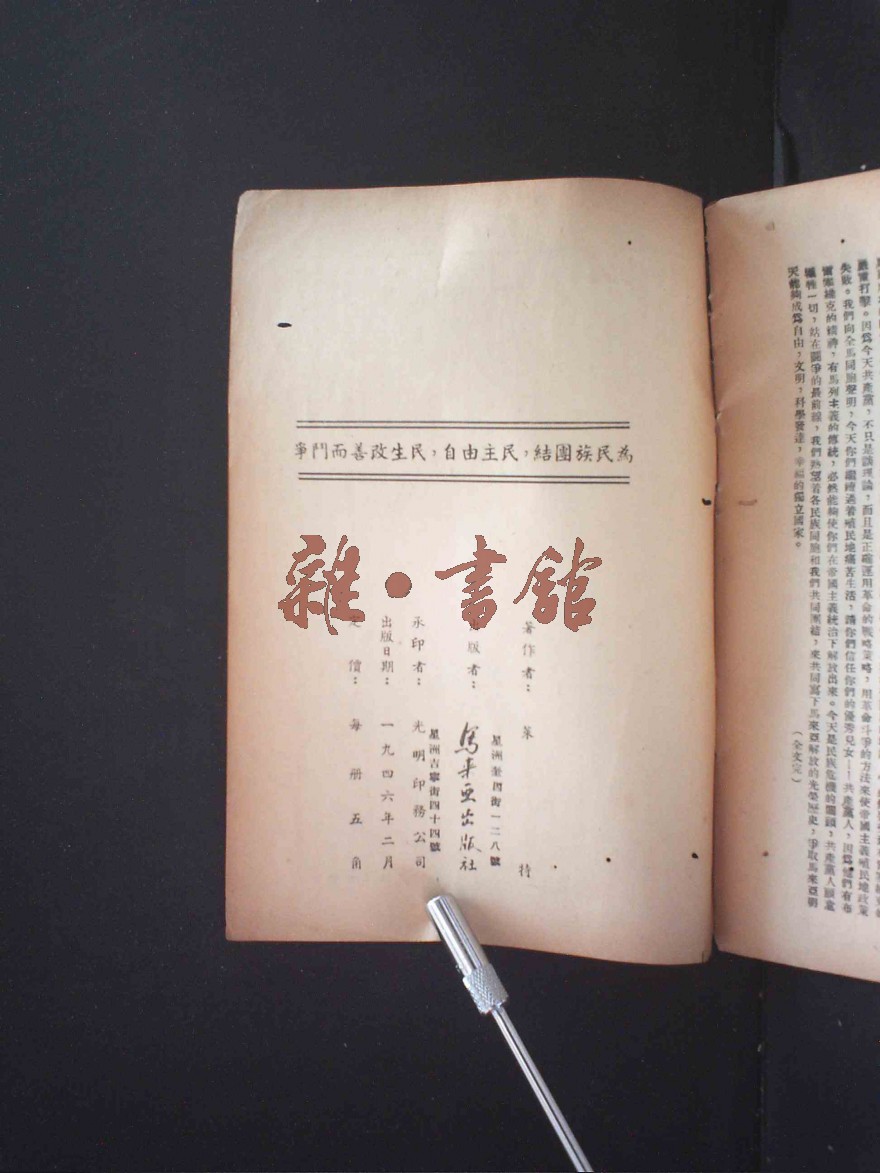 嚴重打擊。因爲今天共產黨,不只是談理論,而且是正確運用革命的戰略策略,用革命斗爭的方法來使帝國主義殖民地政策
失敗。我們向全馬同胞聲明,今天你們繼續過着殖民地痛苦生活,請你們信任你們的優秀兒女——共產黨人,因爲他們有布
爾塞維克的精神,有馬列主義的傳統,必然能夠使你們在帝國主義統治下解放出來。今天是民族危機的關頭,共產黨人願意
犧牲一切,站在鬪爭的最前線,我們熱望着各民族同胞和我們共同團結,來共同寫下馬來亞解放的光榮歷史,爭取馬來亞明
天能夠成爲自由,文明,科學發達,幸福的獨立國家。
(全文完)
為民族團結,民主自由,民生改善而鬥爭
雜·書館
著作者:萊特
出版者:馬來亞出版社
星洲奎因街一二八號
承印者:光明印務公司
星洲吉寧街四十四號
出版日期:一九四六年二月
定價:每册五角